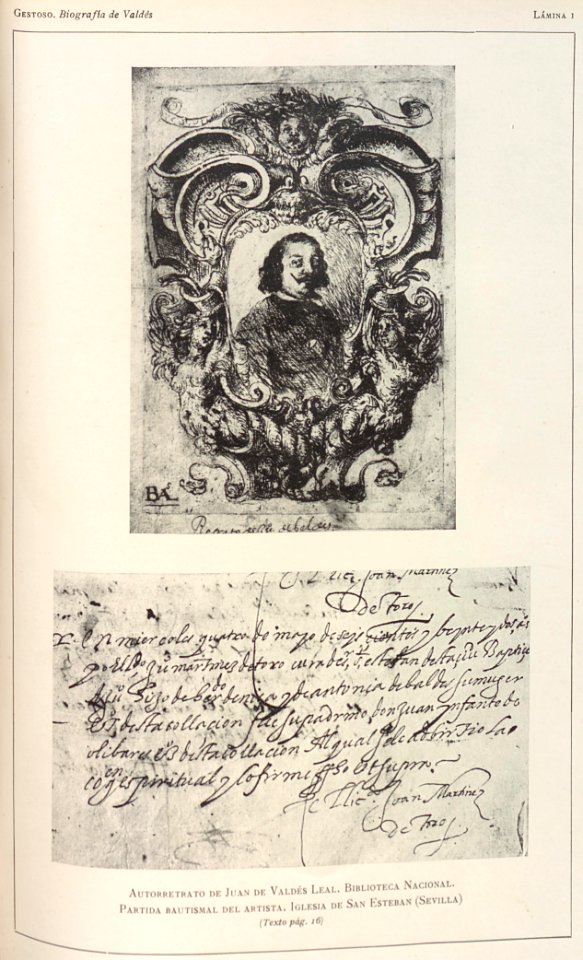 GESTOSO. Biografía de Valdés
LÁMINA 1
Joan Martinez
de Toro
En miercoles quatro de mayo de seys zientos y beynte y dos
martinez de toro cura de s. esteban desta Baptice
a Juº hijo de y de antonia de baldes su muger
desta collacion fue su padrino don Juan ynfante de
olibares desta collacion Al qual se le adbirtio la
espiritual y lo firme ffo Ut supra
El Licdo Joan Martinez
de Toro
AUTORRETRATO DE JUAN DE VALDÉS LEAL. BIBLIOTECA NACIONAL.
PARTIDA BAUTISMAL DEL ARTISTA. IGLESIA DE SAN ESTEBAN (SEVILLA)
(Texto pág. 16)